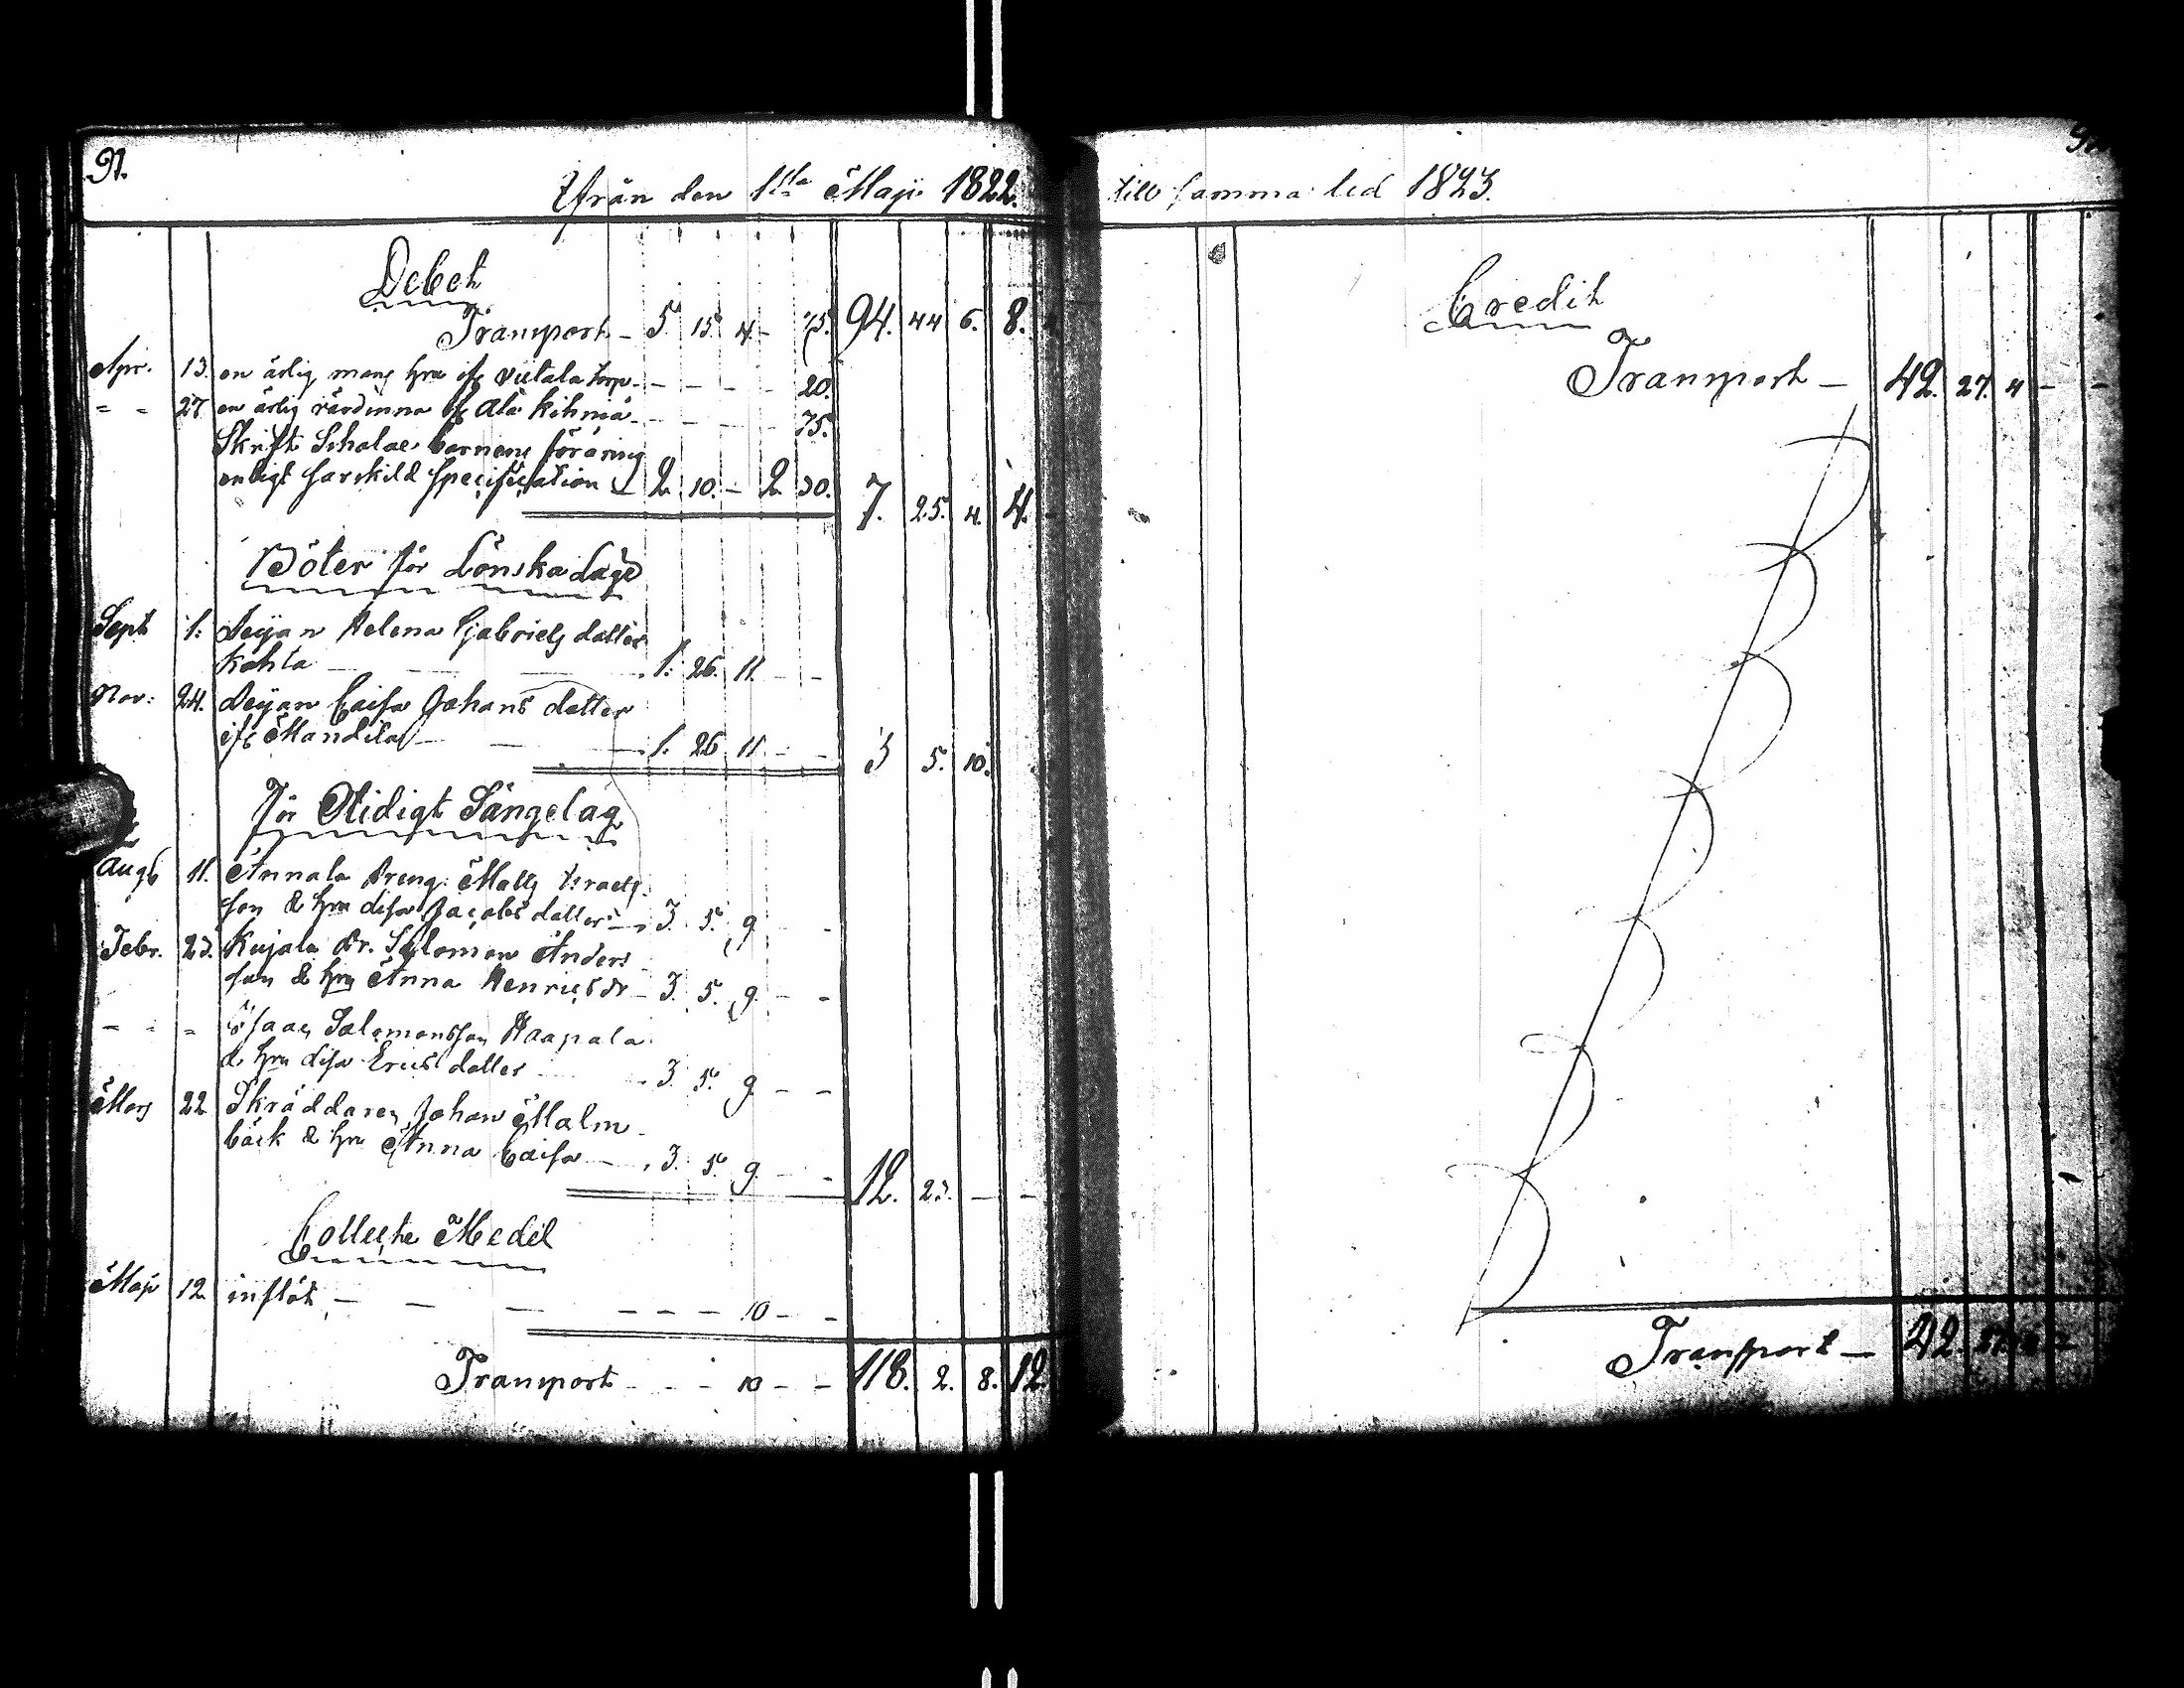 91.
Ifrån den 1sta Maji 1822.
Debet
Transport - 5. 15. 4 - 75. 94. 44 6. 8.
Apr. 13. en ärlig mans hru ifr. torp - - - - - 20.
= = 27. en ärlig värdinna ifr. Ala Kihniä - - - - - 75.
Skrift Scholae barnens föräring
enligt särskild specification - 2. 10. - 2 30. 7. 25. 4. 4.
Böter för Lönskaläge
Sept 1. Pigan Helena Gabriels dotter
Kohta - - 1. 26. 11. - -
Nov: 24. Pigan Caisa Johans dotter
ifr Mandila - - 1. 26 11. - - 3 5. 10.
För Otidigt Sängelag
Aug. 11. Annala Dreng Matts Israels
son & hru Lisa Jacobs dotter - 3. 5. 9 -
Febr. 23. Kujala Dr. Salomon Anders
son & hru Anna Henricsdr - 3. 5. 9. - -
- - = Isaac Salomonsson Haapala
& hru Lisa Erics dotter - 3. 5. 9 - -
Mars 22 Skräddaren Johan Malm
bäck & hru Anna Caisa - 3. 5. 9. - - 12. 23. - -
Collecte Medel
Maji 12 inflöt - - - - - - 10 - -
Transport - - - 10 - - 118. 2. 8. 12
till samma tid 1823.
Credit
Transport - 42. 27. 4 - -
Transport - 42.